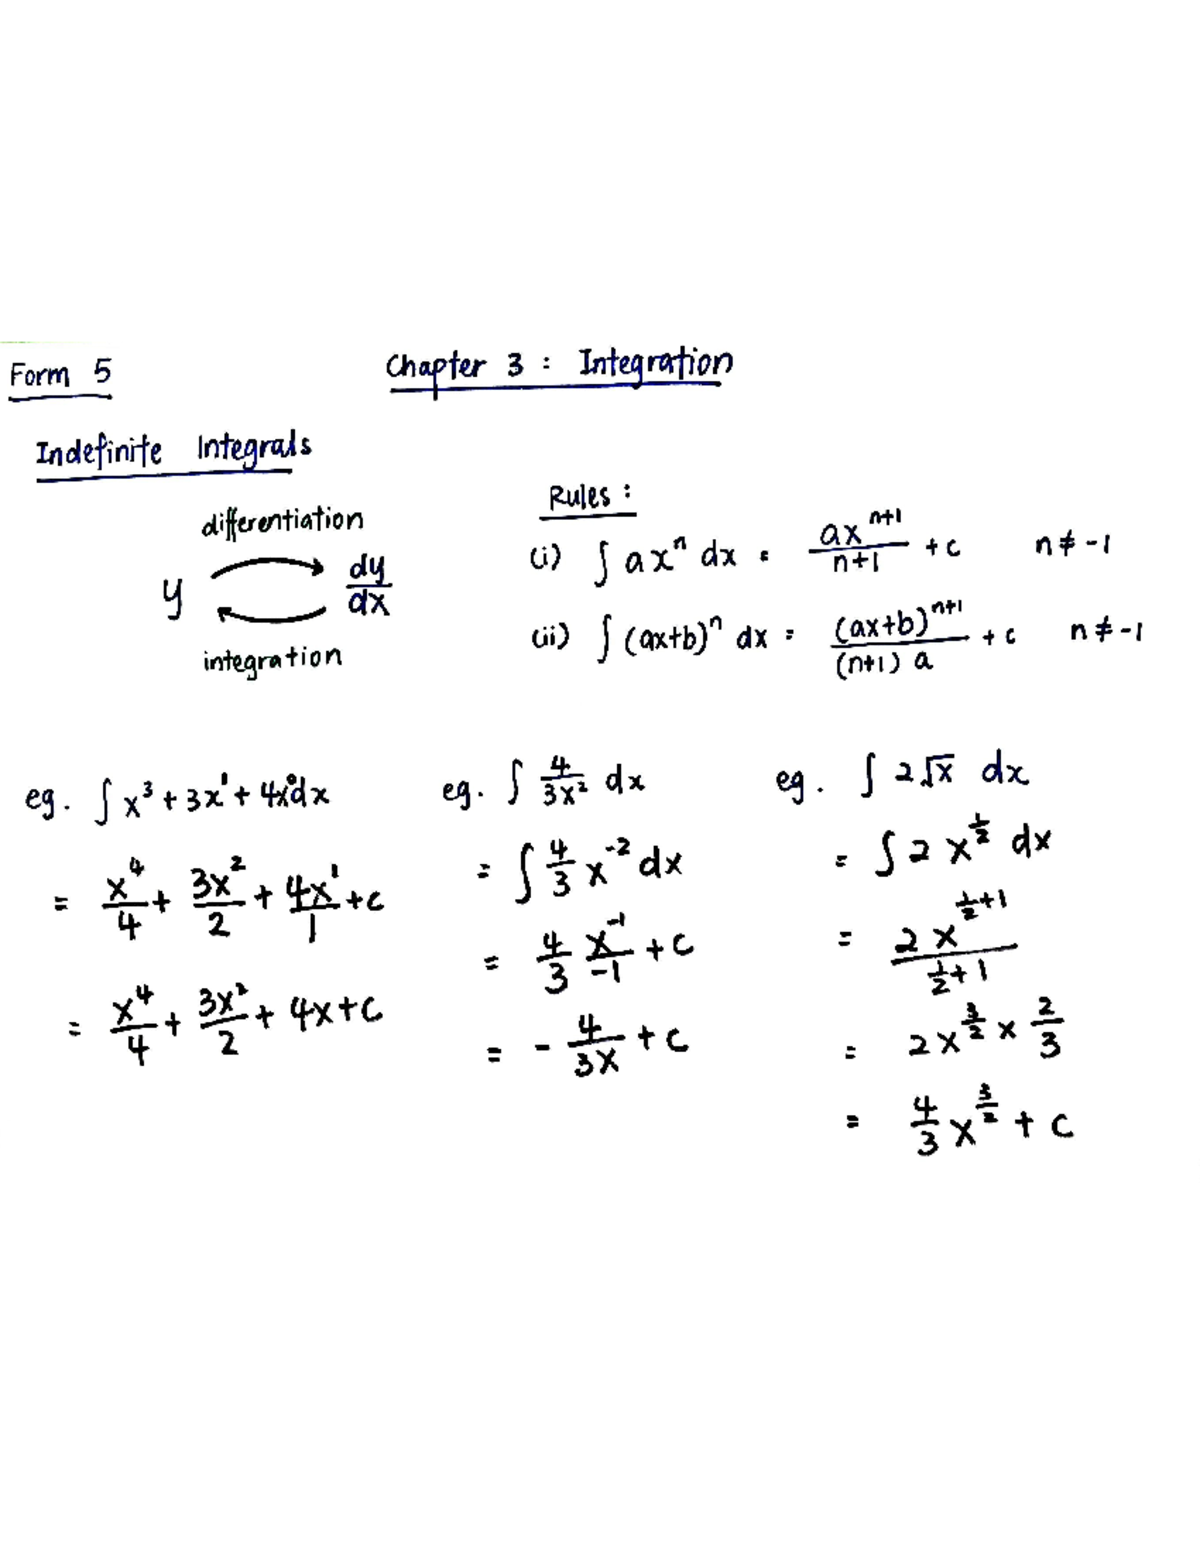 Form 5
Chapter 3 : Integration
Indefinite Integrals
differentiation
y dy/dx
integration
Rules :
(i) ∫ axⁿ dx = ax^(n+1)/(n+1) + c n ≠ -1
(ii) ∫ (ax+b)ⁿ dx = (ax+b)^(n+1)/((n+1) a) + c n ≠ -1
eg. ∫ x³ + 3x¹ + 4x⁰ dx
= x⁴/4 + 3x²/2 + 4x¹/1 + c
= x⁴/4 + 3x²/2 + 4x + c
eg. ∫ 4/(3x²) dx
= ∫ 4/3 x⁻² dx
= 4/3 x⁻¹/-1 + c
= - 4/(3x) + c
eg. ∫ 2√x dx
= ∫ 2 x^(1/2) dx
= 2x^(1/2+1)/(1/2+1)
= 2x^(3/2) × 2/3
= 4/3 x^(3/2) + c